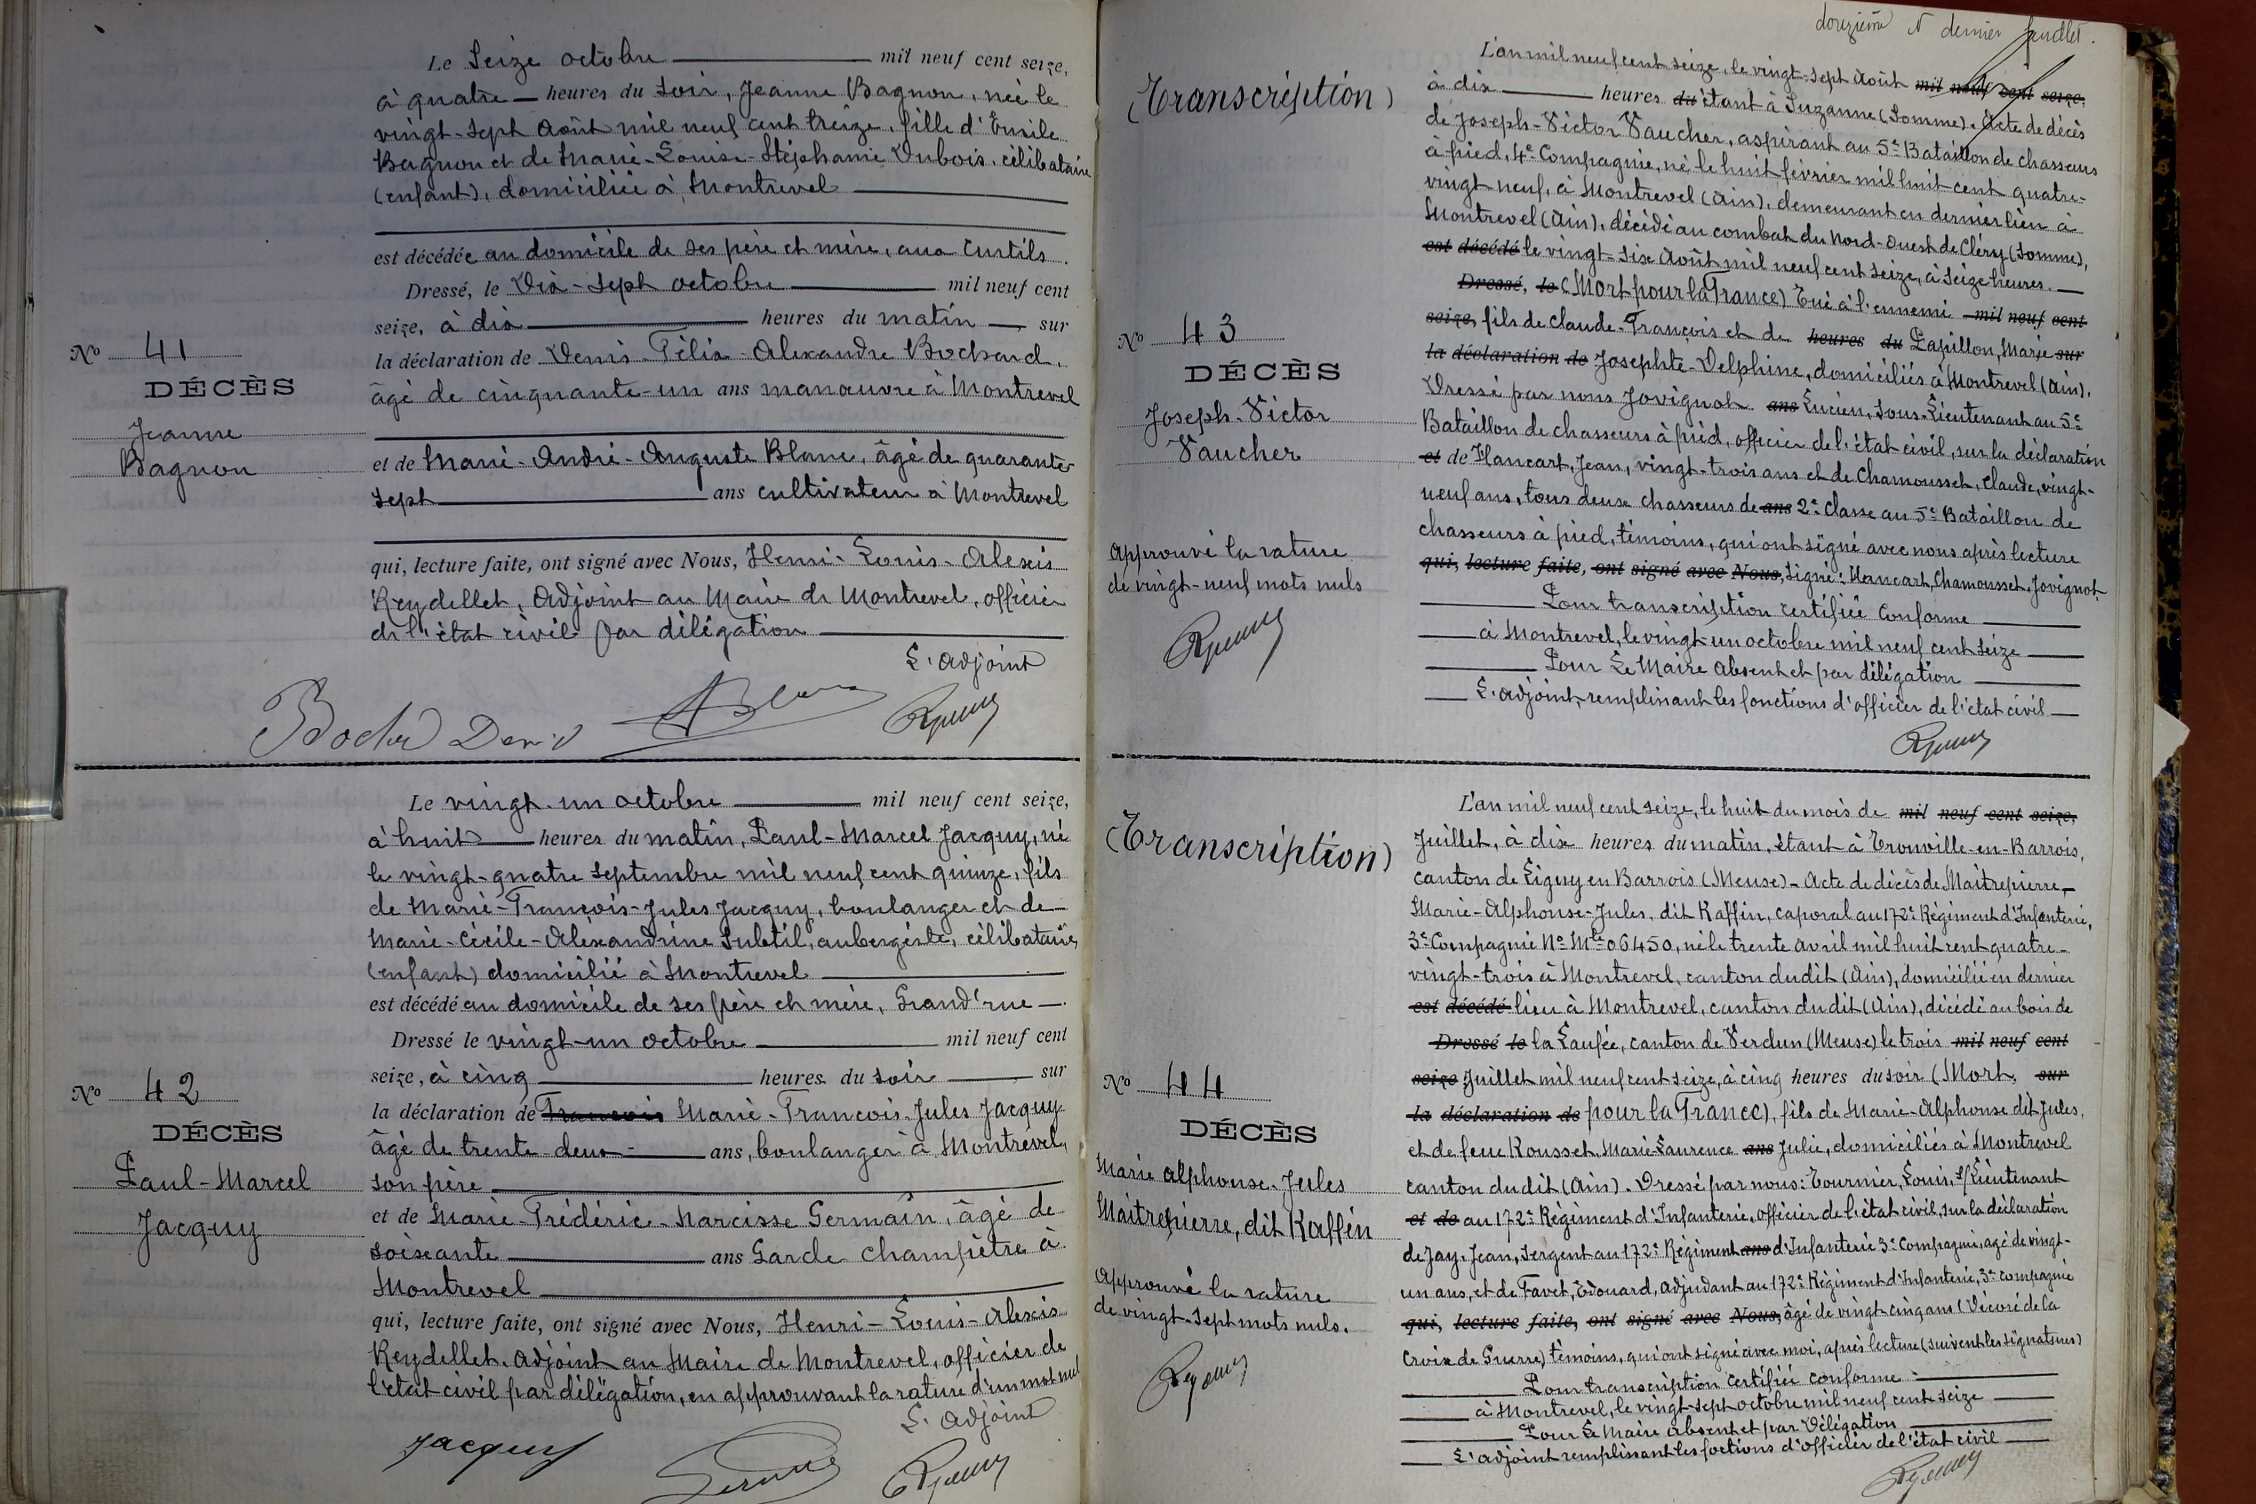 Le Seize octobre mil neuf cent seize,
à quatre heures du soir, Jeanne Bagnon, née le
vingt-sept Août mil neuf cent treize, fille d'Emile
Bagnon et de Marie-Louise-Stéphanie Dubois, célibataire
(enfant), domiciliée à Montrevel
est décédée au domicile de ses père et mère, aux Curtils.
Dressé, le Dix-sept octobre mil neuf cent
seize, à dix heures du matin sur
la déclaration de Denis-Félix-Alexandre Bochard,
âgé de cinquante-un ans manœuvre à Montrevel
No 41
DÉCÈS
Jeanne
Bagnon
et de Marie-André-Auguste Blanc, âgé de quarante-
sept ans cultivateur à Montrevel
qui, lecture faite, ont signé avec Nous, Henri-Louis-Alexis
Reydellet, Adjoint au Maire de Montrevel, officier
de l'état civil par délégation
L'adjoint
Le vingt-un octobre mil neuf cent seize,
à huit heures du matin, Paul-Marcel Jacquy, né
le vingt-quatre septembre mil neuf cent quinze, fils
de Marie-François-Jules Jacquy, boulanger et de
Marie-Cécile-Alexandrine Subtil, aubergiste, célibataire,
(enfant) domicilié à Montrevel
est décédé au domicile de ses père et mère, Grand'rue
Dressé le vingt-un octobre mil neuf cent
seize, à cinq heures du soir sur
la déclaration de François Marie-François-Jules Jacquy
âgé de trente-deux ans, boulanger à Montrevel,
son père
No 42
DÉCÈS
Paul-Marcel
Jacquy
et de Marie-Frédéric-Narcisse Germain, âgé de
soixante ans Garde champêtre à
Montrevel
qui, lecture faite, ont signé avec Nous, Henri-Louis-Alexis
Reydellet, Adjoint au Maire de Montrevel, officier de
l'état civil par délégation, en approuvant la rature d'un mot nul
L'adjoint
Jacquy
douzième et dernier feuillet.
(Transcription)
L'an mil neuf cent seize, le vingt-sept Août mil neuf cent seize,
à dix heures du étant à Suzanne (Somme). Acte de décès
de Joseph-Victor Vaucher, aspirant au 5e Bataillon de chasseurs
à pied, 4e Compagnie, né le huit février mil huit cent quatre-
vingt neuf, à Montrevel (Ain), demeurant en dernier lieu à
Montrevel (Ain), décédé au combat du Nord-Ouest de Cléry (Somme),
est décédé le vingt-six Août mil neuf cent seize, à seize heures.
Dressé, le (Mort pour la France) Tué à l'ennemi mil neuf cent
seize, fils de Claude-François et de heures du Papillon, Marie sur
la déclaration de Josephte-Delphine, domiciliés à Montrevel (Ain).
Dressé par nous Jovignot ans Lucien, Sous-Lieutenant au 5e
Bataillon de chasseurs à pied, officier de l'état civil, sur la déclaration
et de Hancart, Jean, vingt-trois ans et de Chamousset, Claude, vingt-
neuf ans, tous deux chasseurs de ans 2e Classe au 5e Bataillon de
chasseurs à pied, témoins, qui ont signé avec nous après lecture
qui, lecture faite, ont signé avec Nous, Signé: Hancart, Chamousset, Jovignot.
Pour transcription certifiée conforme
à Montrevel, le vingt-un octobre mil neuf cent seize
Pour Le Maire absent et par délégation
L'adjoint, remplissant les fonctions d'officier de l'état civil
No 43
DÉCÈS
Joseph-Victor
Vaucher
Approuvé la rature
de vingt-neuf mots nuls
(Transcription)
L'an mil neuf cent seize, le huit du mois de mil neuf cent seize,
Juillet, à dix heures du matin, étant à Tronville-en-Barrois,
canton de Ligny en Barrois (Meuse) - Acte de décès de Maitrepierre,
Marie-Alphonse-Jules, dit Raffin, caporal au 172e Régiment d'Infanterie,
3e Compagnie No Mle 06450, né le trente avril mil huit cent quatre-
vingt-trois à Montrevel, canton dudit (Ain), domicilié en dernier
est décédé lieu à Montrevel, canton dudit (Ain), décédé au bois de
Dressé le la Laufée, canton de Verdun (Meuse) le trois mil neuf cent
seize Juillet mil neuf cent seize, à cinq heures du soir (Mort sur
la déclaration de pour la France), fils de Marie-Alphonse dit Jules,
et de feue Rousset, Marie-Laurence ans Julie, domiciliés à Montrevel
canton dudit (Ain). Dressé par nous: Tournier, Louis, s/Lieutenant
et de au 172e Régiment d'Infanterie, officier de l'état civil, sur la déclaration
de Jay, Jean, Sergent au 172e Régiment ans d'Infanterie 3e Compagnie, agé de vingt-
un ans, et de Favet, Edouard, adjudant au 172e Régiment d'Infanterie, 3e Compagnie
qui, lecture faite, ont signé avec Nous, âgé de vingt cinq ans (Décoré de la
Croix de Guerre) témoins, qui ont signé avec moi, après lecture (suivent les signatures)
Pour transcription certifiée conforme
à Montrevel, le vingt-sept octobre mil neuf cent seize
Pour Le Maire absent et par Délégation
L'adjoint remplissant les foctions d'officier de l'état civil
No 44
DÉCÈS
Marie Alphonse-Jules
Maitrepierre, dit Raffin
Approuvé la rature
de vingt-sept mots nuls.